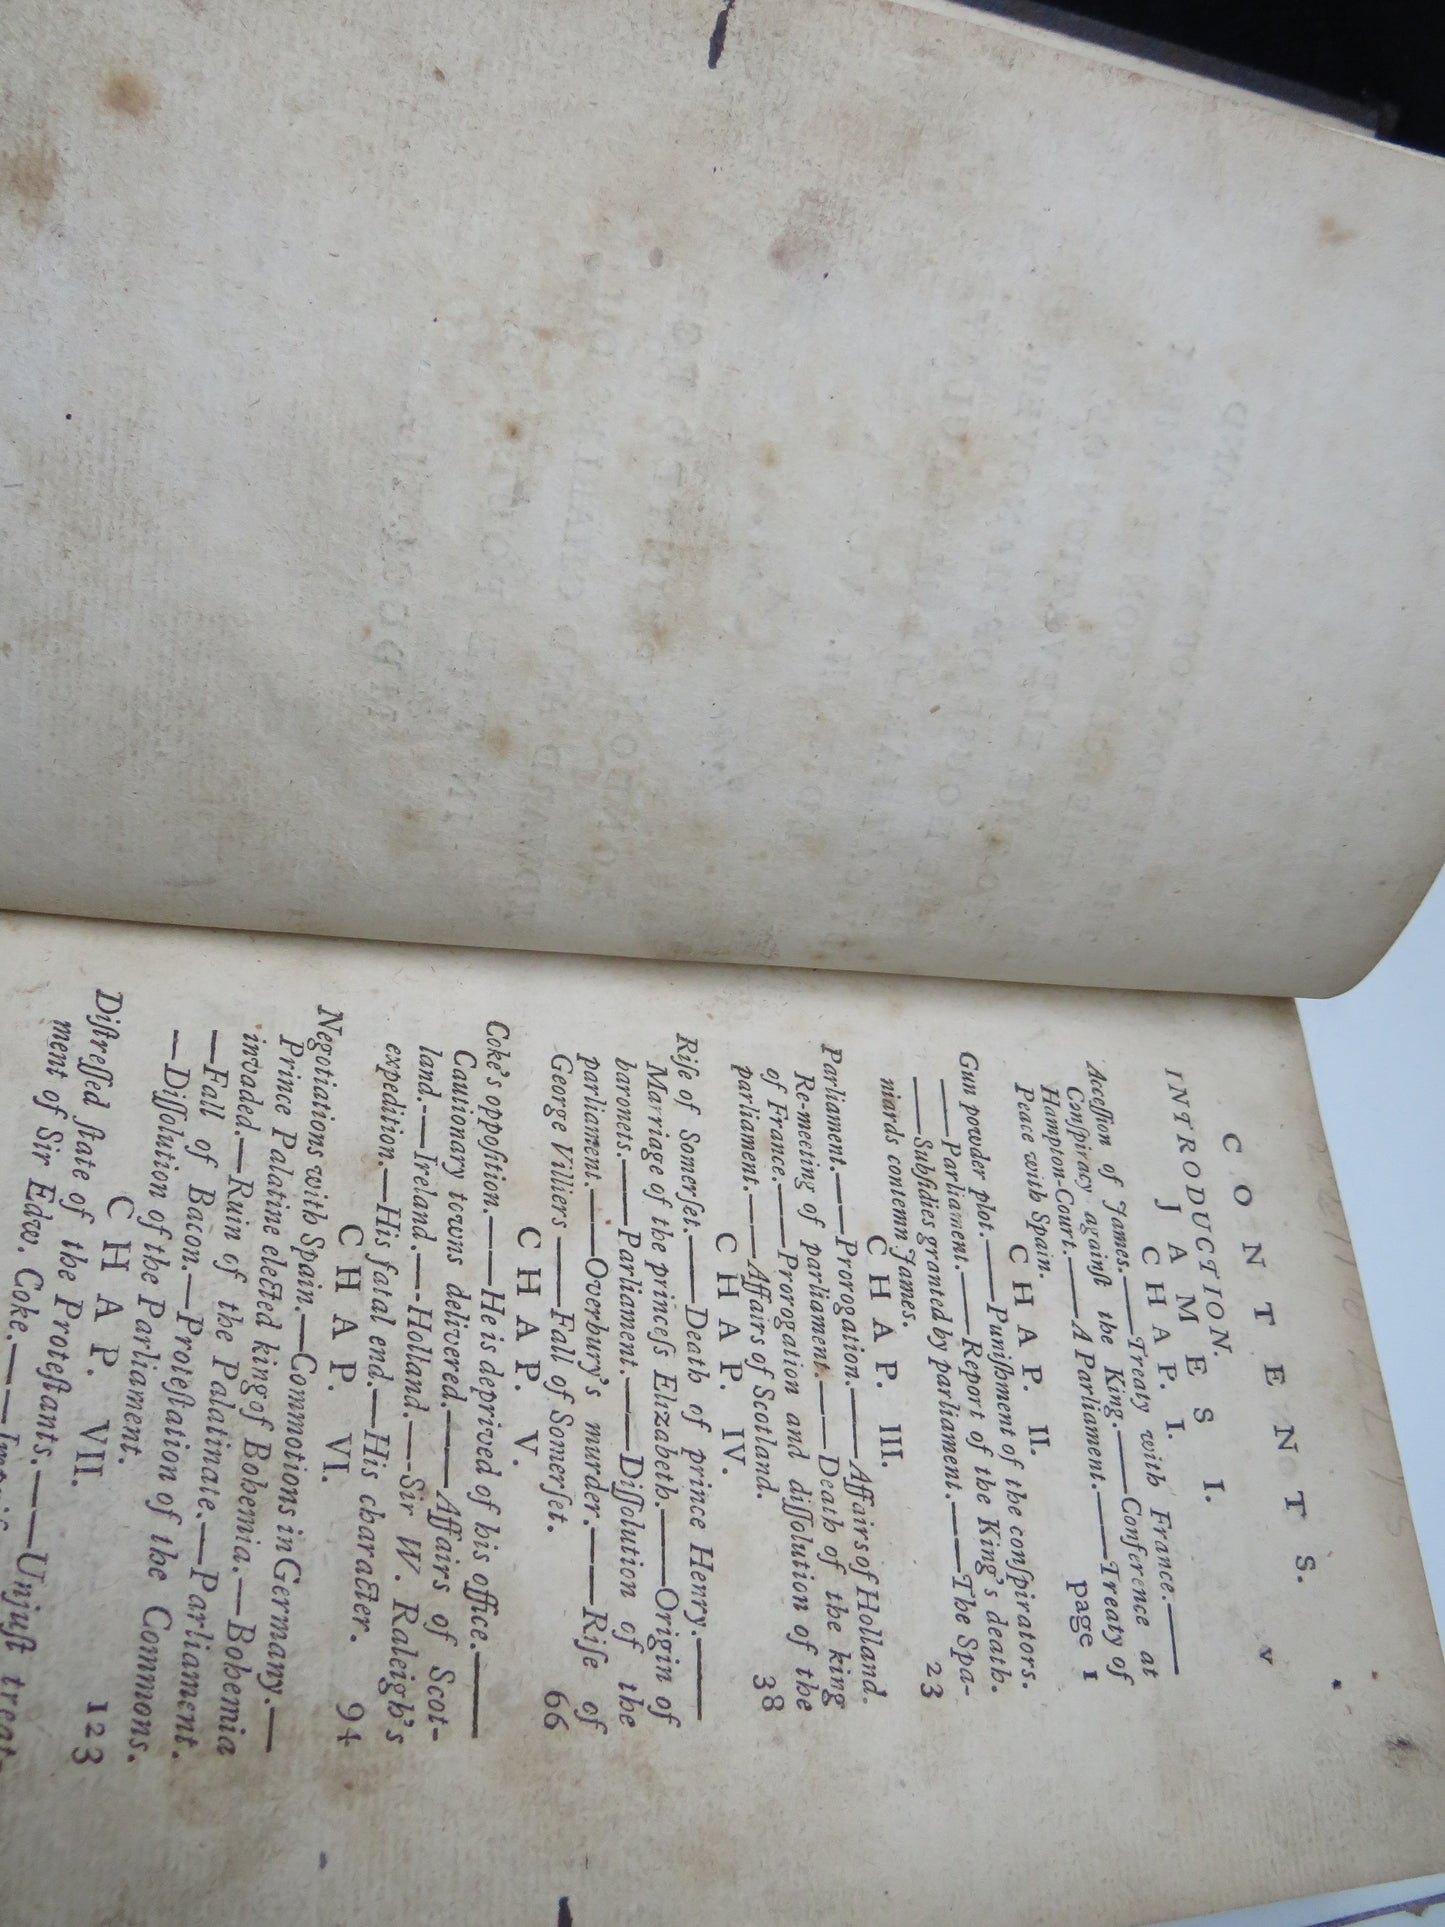 CONTENTS.
INTRODUCTION. v
JAMES I.
CHAP. I.
Acceſſion of James.——Treaty with France.——
Conſpiracy againſt the King.——Conference at
Hampton-Court.——A Parliament.——Treaty of
Peace with Spain. page 1
CHAP. II.
Gun powder plot.——Puniſhment of the conſpirators.
——Parliament.——Report of the King's death.
——Subſidies granted by parliament.——The Spa-
niards contemn James. 23
CHAP. III.
Parliament.——Prorogation.——Affairs of Holland.
Re-meeting of parliament.——Death of the king
of France.——Prorogation and diſſolution of the
parliament.——Affairs of Scotland. 38
CHAP. IV.
Riſe of Somerſet.——Death of prince Henry.——
Marriage of the princeſs Elizabeth.——Origin of
baronets.——Parliament.——Diſſolution of the
parliament.——Overbury's murder.——Riſe of
George Villiers——Fall of Somerſet. 66
CHAP. V.
Coke's oppoſition.——He is deprived of his office.——
Cautionary towns delivered.——Affairs of Scot-
land.——Ireland.——Holland.——Sir W. Raleigh's
expedition.—His fatal end.—His character. 94
CHAP. VI.
Negotiations with Spain.—Commotions in Germany.—
Prince Palatine elected king of Bohemia.—Bohemia
invaded.—Ruin of the Palatinate.—Parliament.
—Fall of Bacon.—Proteſtation of the Commons.
—Diſſolution of the Parliament. 123
CHAP. VII.
Diſtreſſed ſtate of the Proteſtants.——Unjuſt treat-
ment of Sir Edw. Coke.——